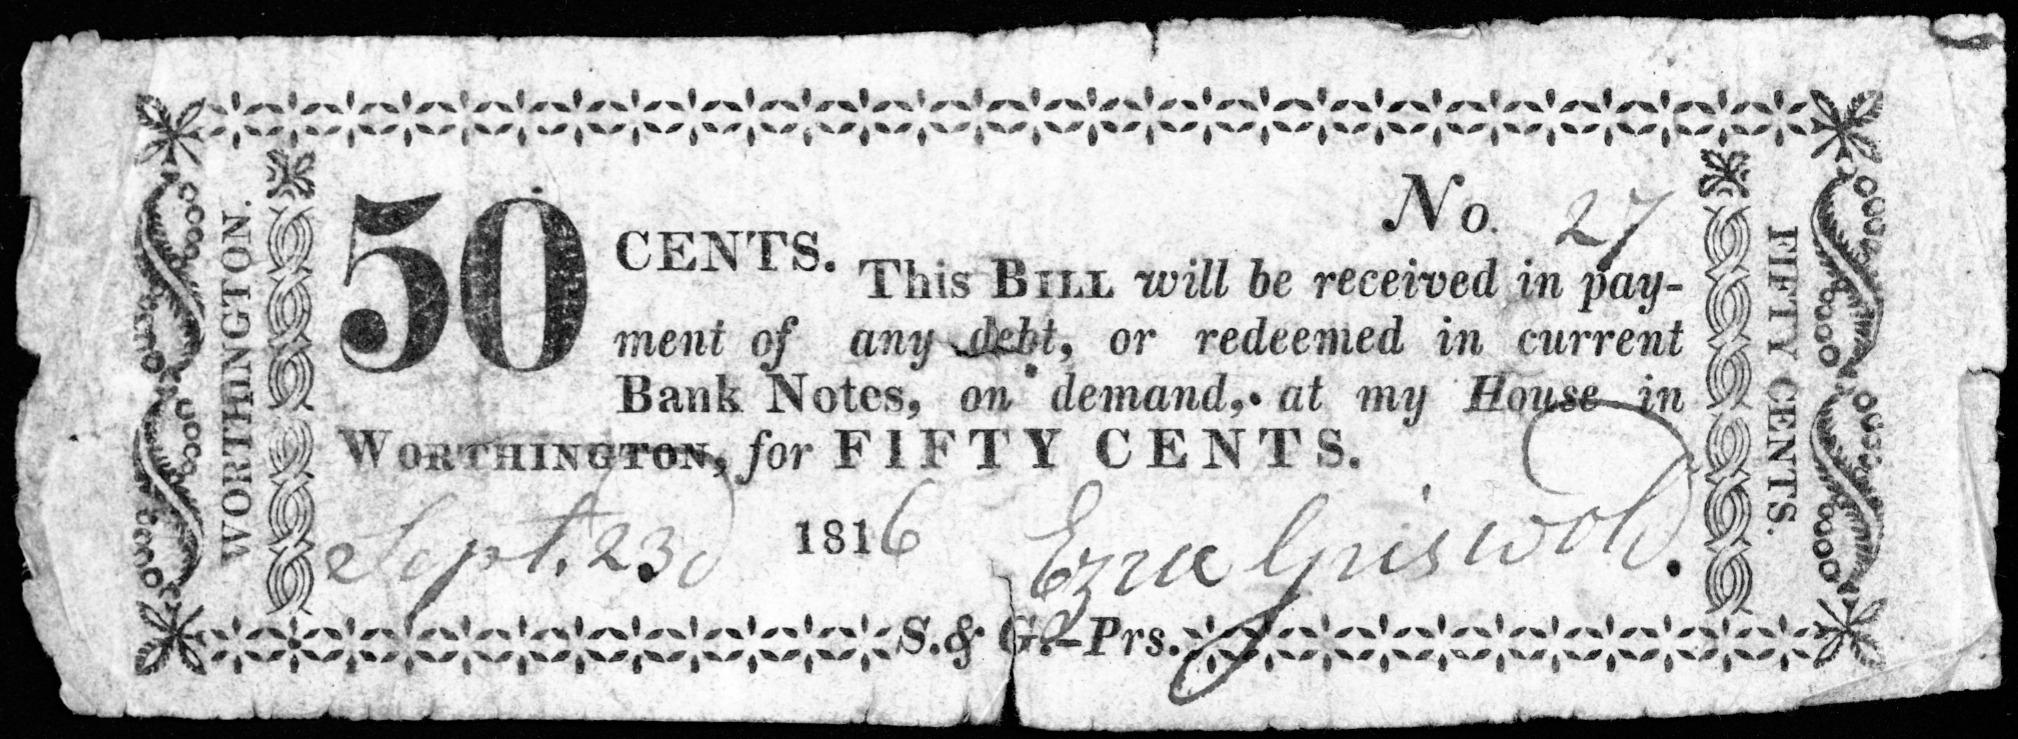 No. 27
50 CENTS. This BILL will be received in pay-
ment of any debt, or redeemed in current
Bank Notes, on demand, at my House in
WORTHINGTON, for FIFTY CENTS.
Sept. 23d 1816 Ezra Griswold.
S. & G.-Prs.
WORTHINGTON.
FIFTY CENTS.